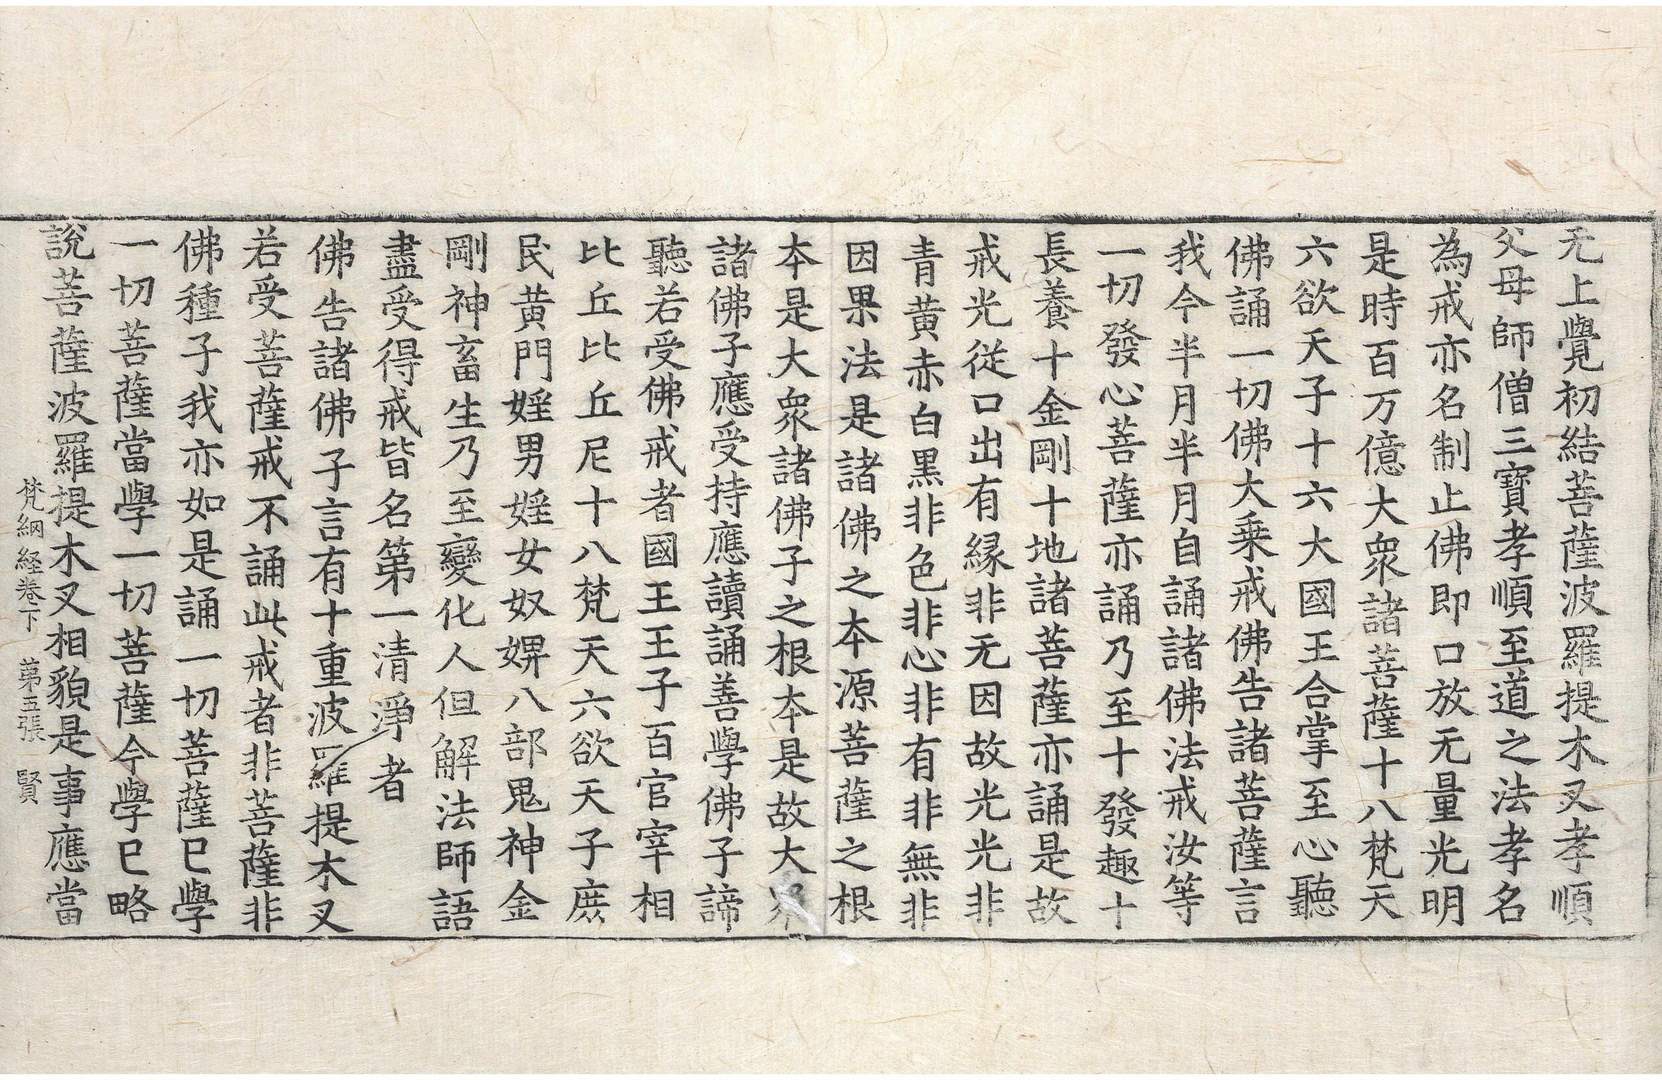 无上覺初結菩薩波羅提木叉孝順
父母師僧三寶孝順至道之法孝名
為戒亦名制止佛即口放无量光明
是時百万億大衆諸菩薩十八梵天
六欲天子十六大國王合掌至心聽
佛誦一切佛大乗戒佛告諸菩薩言
我今半月半月自誦諸佛法戒汝等
一切發心菩薩亦誦乃至十發趣十
長養十金剛十地諸菩薩亦誦是故
戒光従口出有縁非无因故光光非
青黄赤白黒非色非心非有非無非
因果法是諸佛之本源菩薩之根
本是大衆諸佛子之根本是故大衆
諸佛子應受持應讀誦善學佛子諦
聽若受佛戒者國王王子百官宰相
比丘比丘尼十八梵天六欲天子庶
民黄門婬男婬女奴婢八部鬼神金
剛神畜生乃至變化人但解法師語
盡受得戒皆名第一清淨者
佛告諸佛子言有十重波羅提木叉
若受菩薩戒不誦此戒者非菩薩非
佛種子我亦如是誦一切菩薩已學
一切菩薩當學一切菩薩今學已略
說菩薩波羅提木叉相貌是事應當
梵網経卷下 第五張 賢